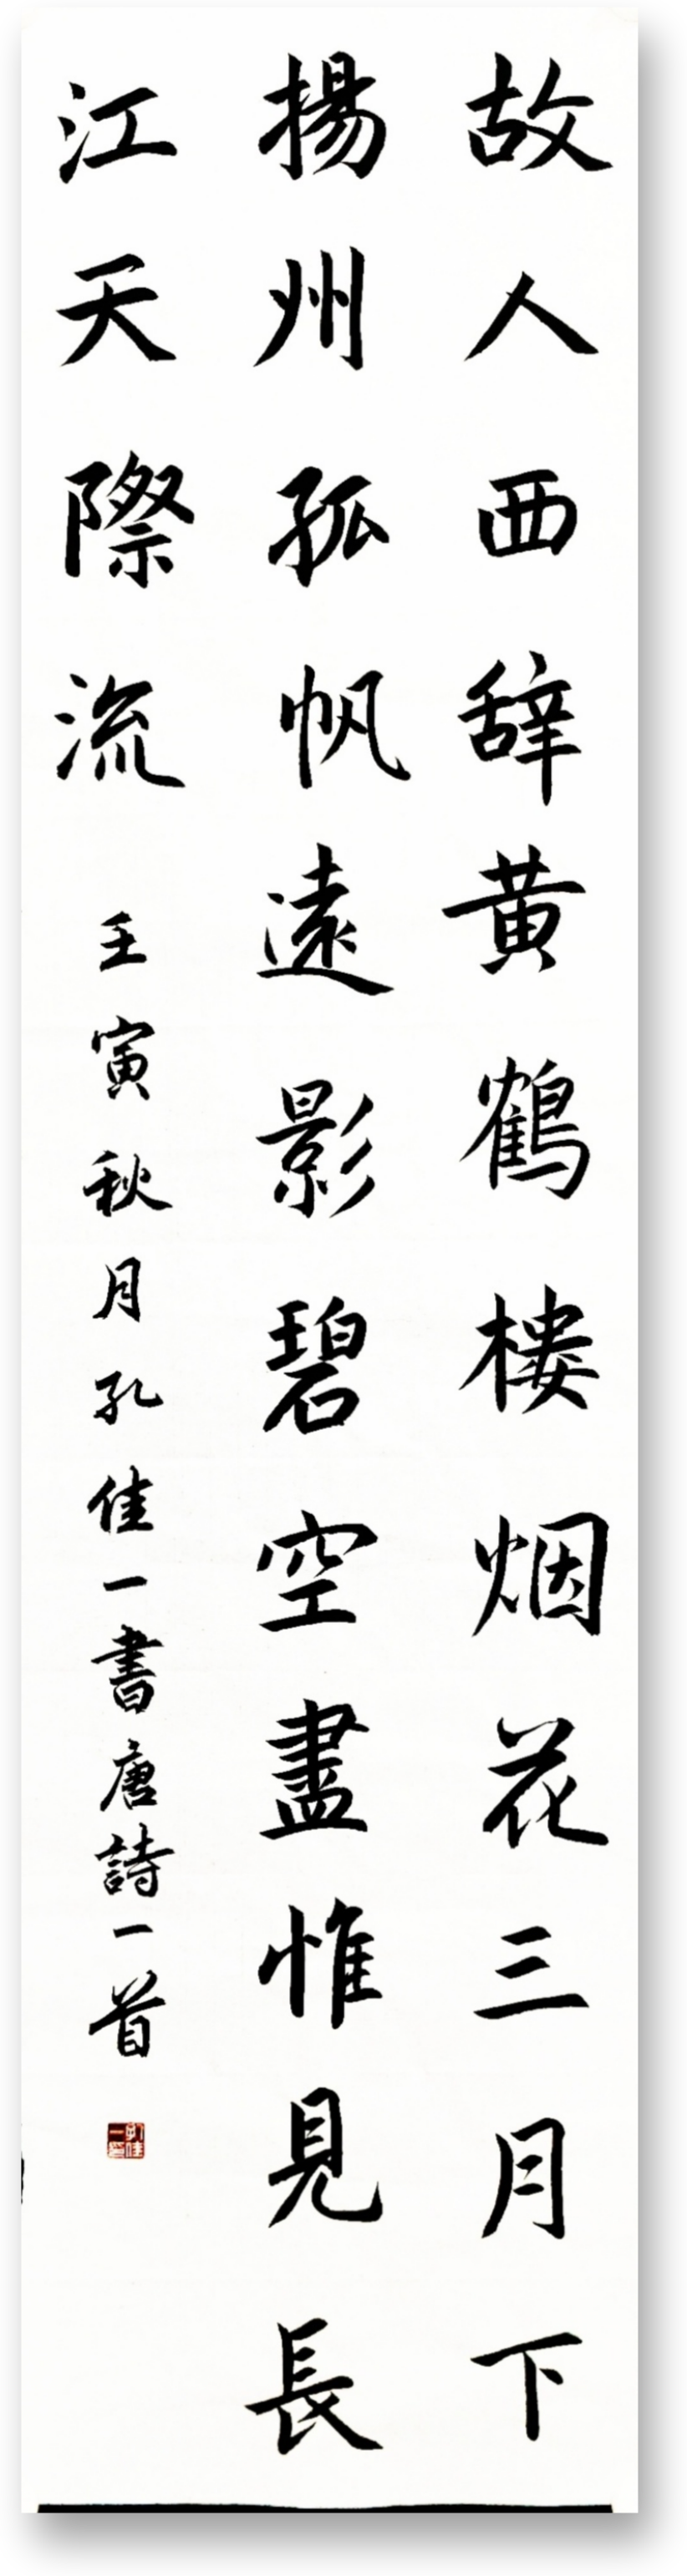 故人西辞黄鶴楼烟花三月下
揚州孤帆遠影碧空盡惟見長
江天際流
壬寅秋月孔佳一書唐詩一首
孔佳一印